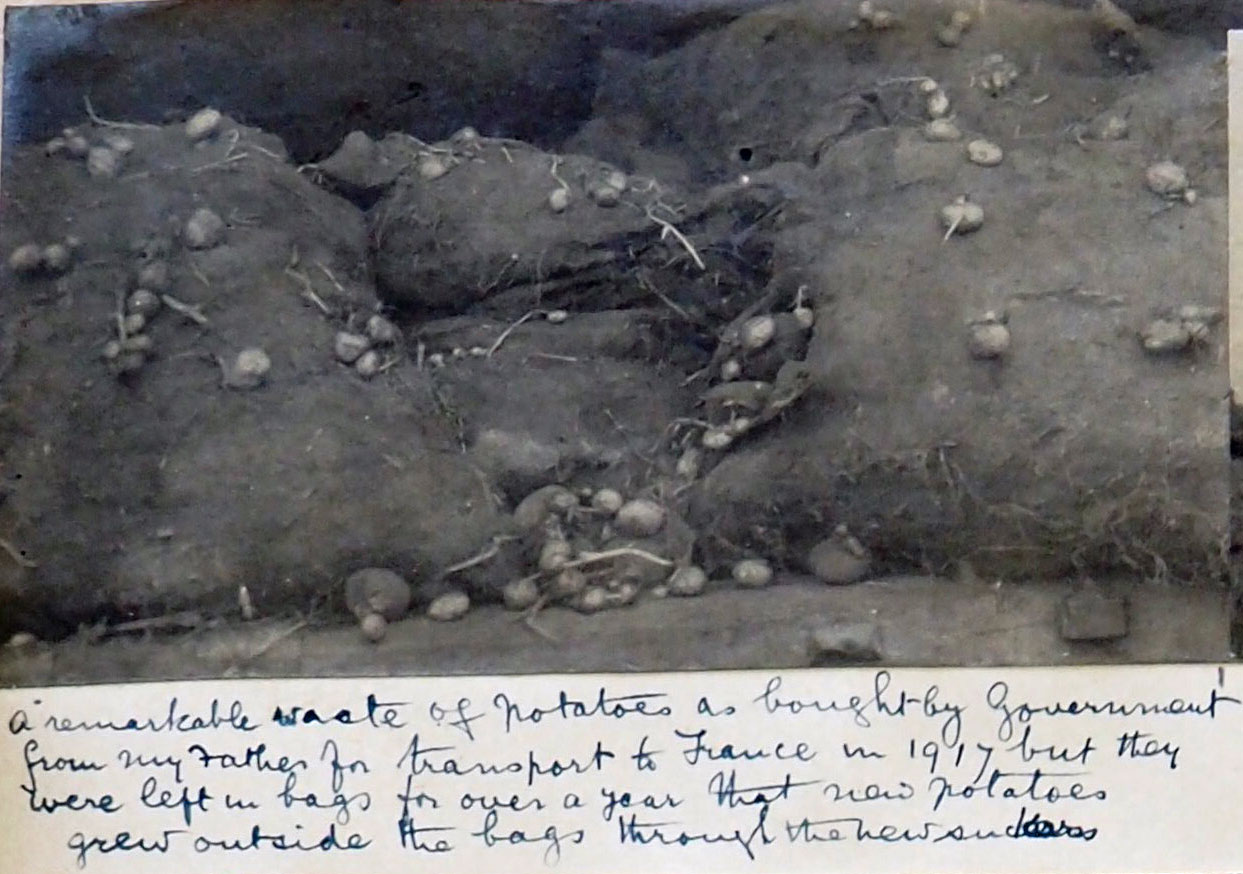 A remarkable waste of potatoes as bought by Government
from my Father for transport to France in 1917 but they
were left in bags for over a year that new potatoes
grew outside the bags through the new suckers